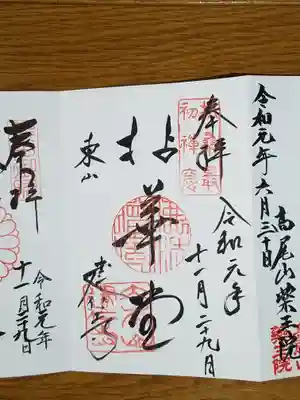 令和元年六月三十日
高尾山薬王院
奉拝
令和元年
十一月二十九日
拈華堂
東山
建仁寺
奉拝
令和元年
十一月二十九日